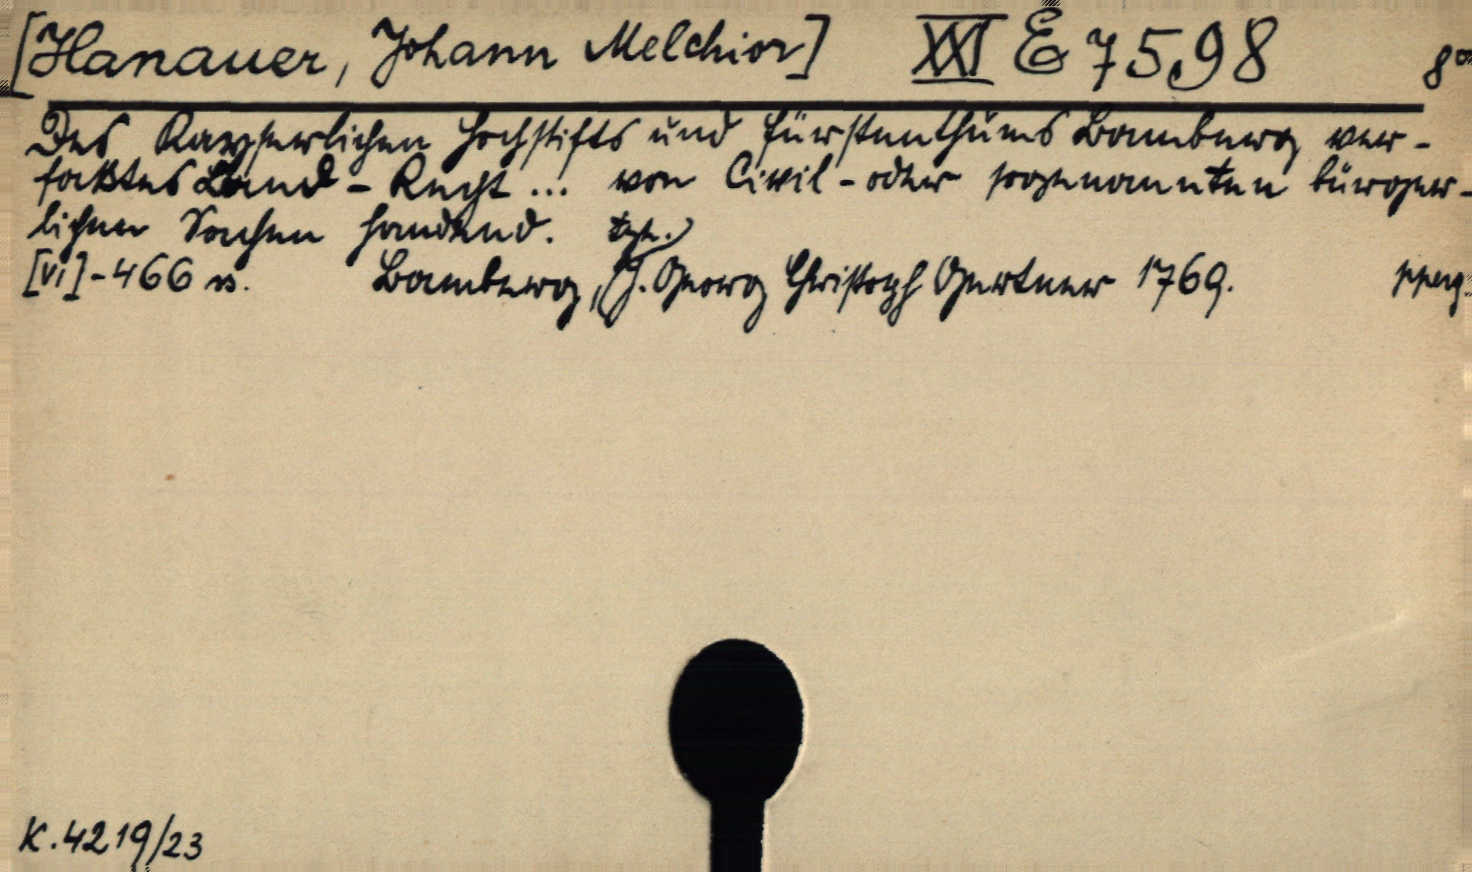 [Hanauer, Johann Melchior] XXI E 7598 8°
Des Kayserlichen Hochstifts und Fürstenthums Bamberg ver-
faßtes Land-Recht ... von Civil- oder sogenannten bürger-
lichen Sachen handlend.
[VI]-466 s. Bamberg, J. Georg Christoph Gertner 1769.
K.4219/23